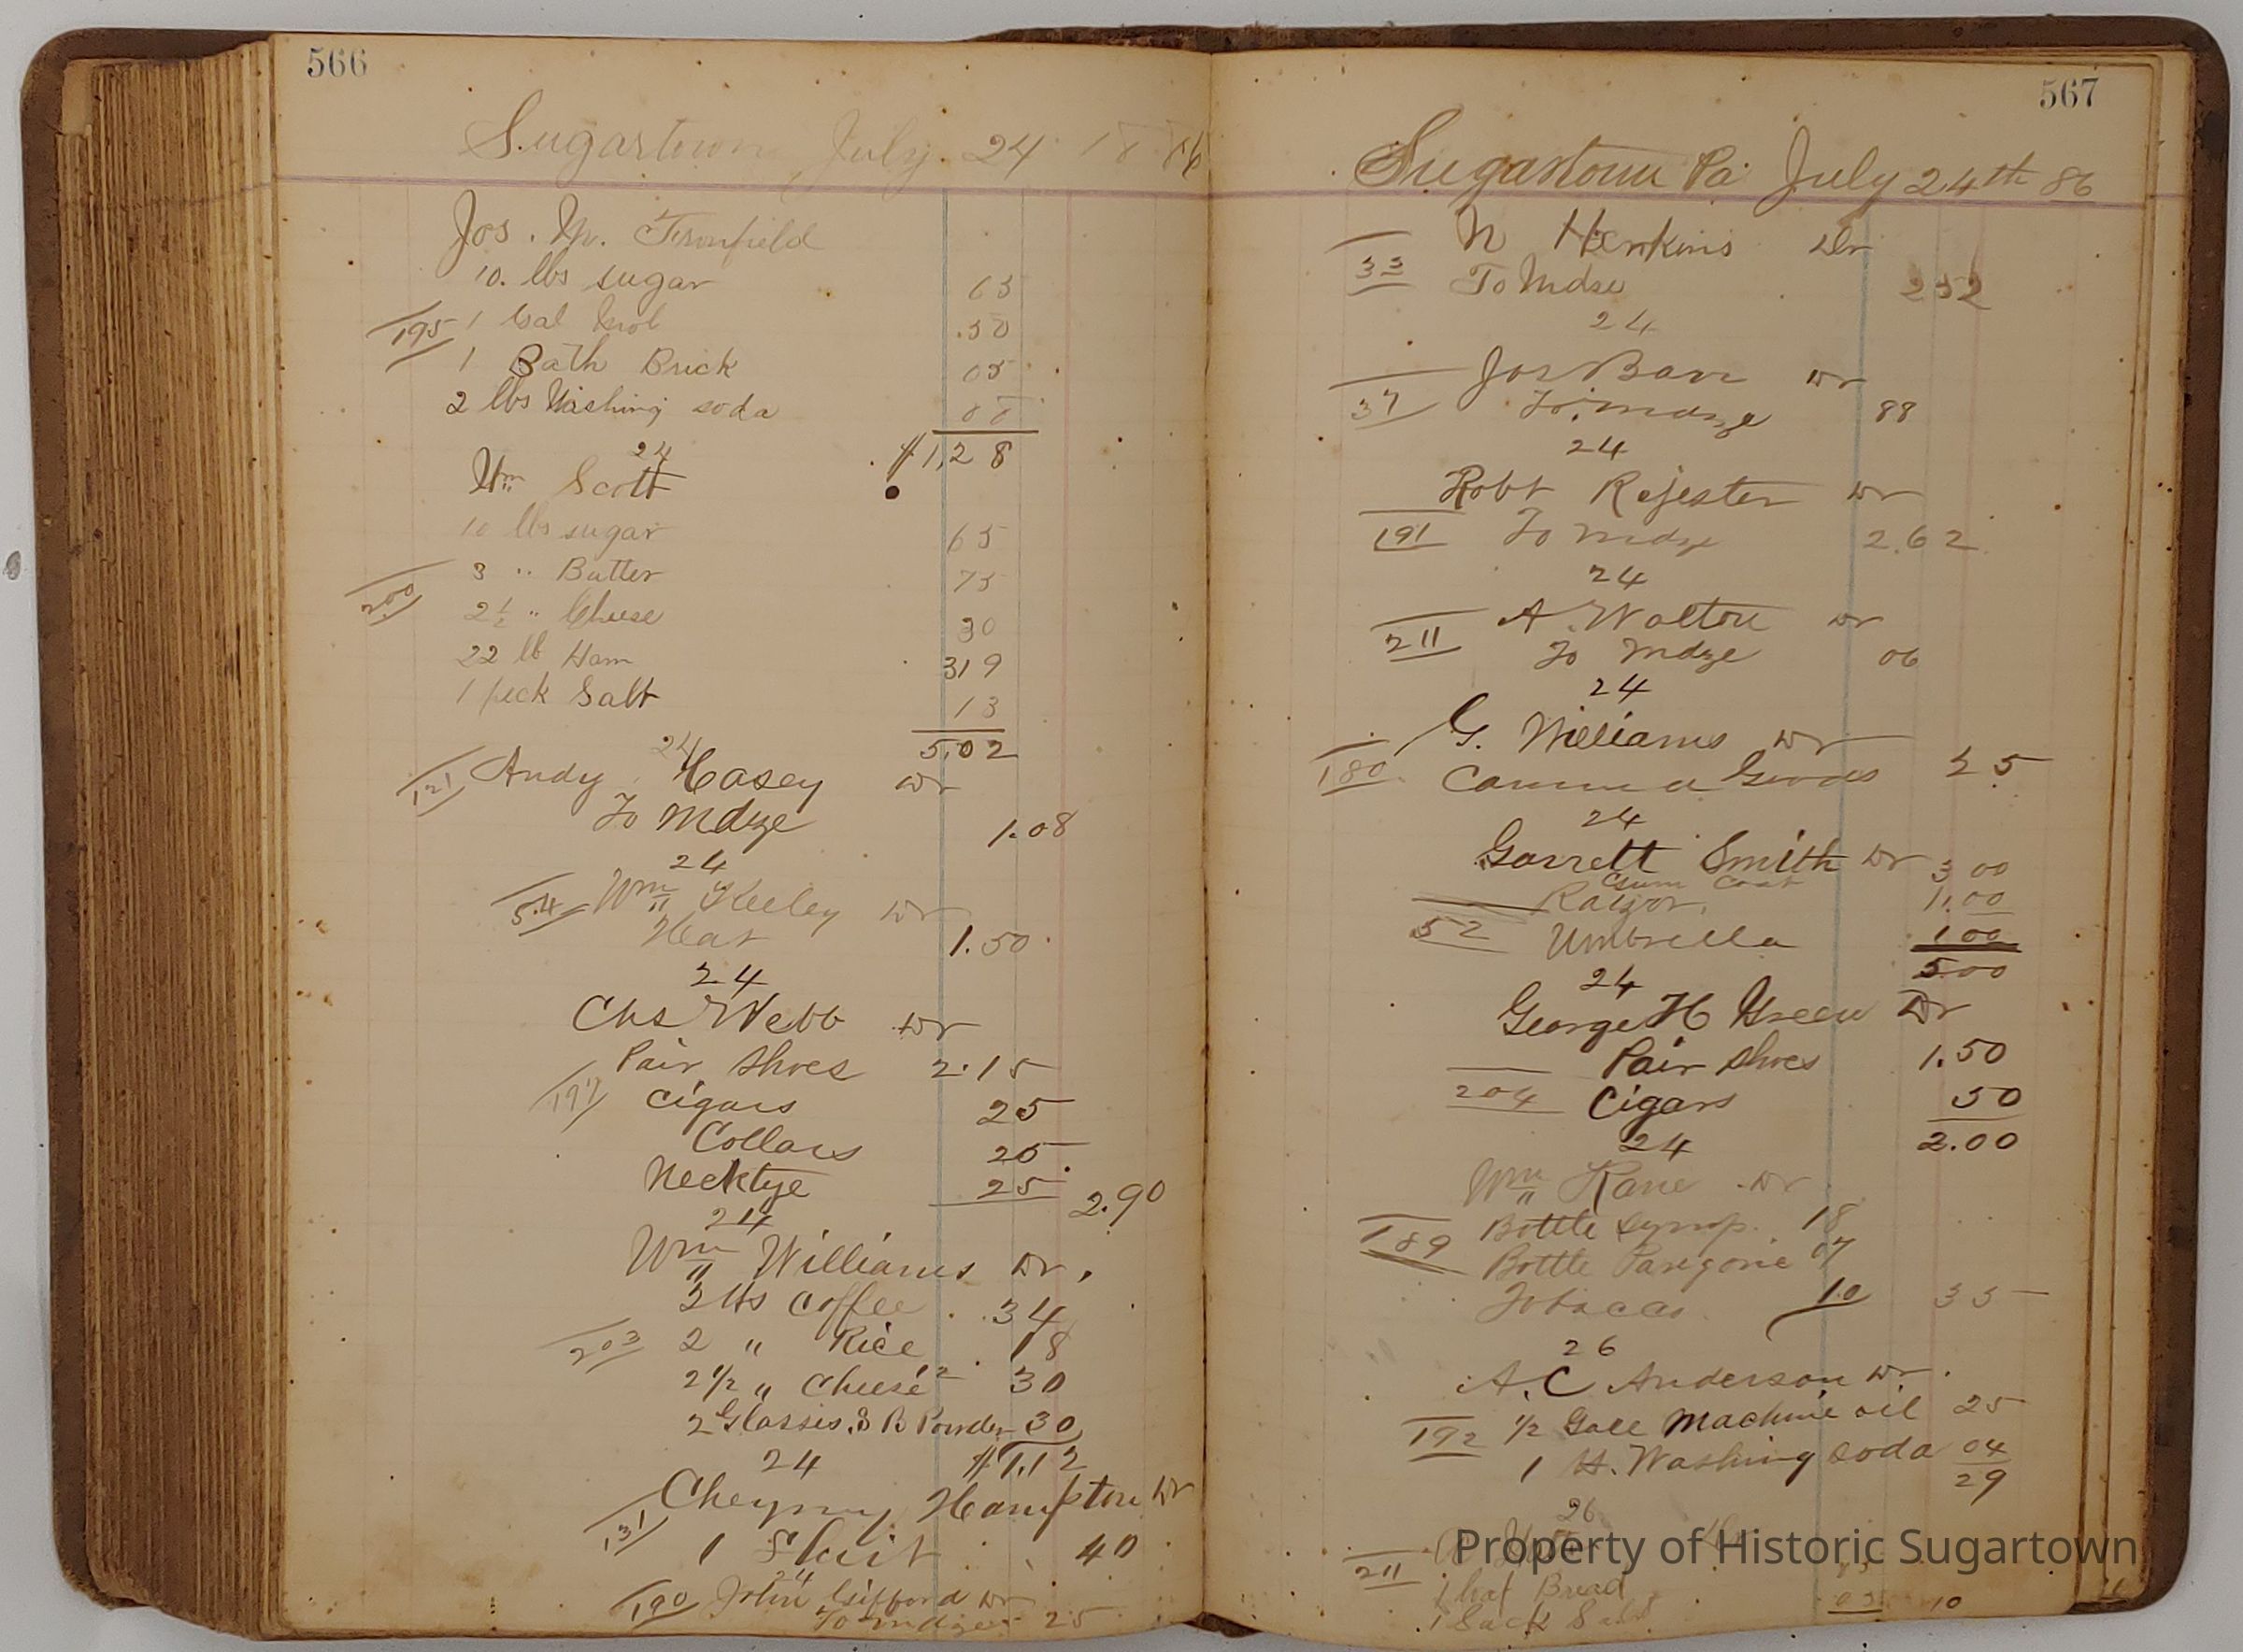 566
Sugartown July 24 1886
Jos. M.
10. lbs sugar 65
195 1 Gal Mol .50
1 Bath Brick 05
2 lbs Washing soda 08
24 $1,28
Wm Scott
10 lbs sugar 65
3 " Butter 75
200 2 1/2 " Cheese 30
22 lb Ham 319
1 peck Salt 13
24 5,02
121 Andy Casey Dr
To Mdze 1.08
24
54 Wm Keeley Dr
Hat 1.50
24
Chs Webb Dr
Pair Shoes 2.15
197 Cigars 25
Collars 25
Necktye 25 2.90
24
Wm Williams Dr.
3 lbs Coffee .34
203 2 " Rice 18
2 1/2 " Cheese 30
2 Glasses B Powder 30
24 $1.12
Hampton Dr
131 1 40
24
190 John Gifford Dr
To Mdze 25
567
Sugartown Pa July 24th 86
N Henkins Dr
33 To Mdse 252
24
Jos Barr Dr
37 To mdze 88
24
Robt Rejester Dr
191 To Mdze 2.62
24
A Walton Dr
211 To Mdze 06
24
G. Williams Dr
180 Goods 25
24
Garrett Smith Dr
Gum Coat 3 00
Razor. 1.00
52 Umbrella 1 00
24 5.00
George H Green Dr
Pair Shoes 1.50
204 Cigars 50
24 2.00
Wm Kane Dr
189 Bottle Syrup. 18
Bottle Paregoric 07
Tobacco 10 35
26
A. C Anderson Dr.
192 1/2 Gall Machine oil 25
1 lb. Washing soda 04
29
26
211
1 loaf Bread
1 Sack Salt 05 10
Property of Historic Sugartown